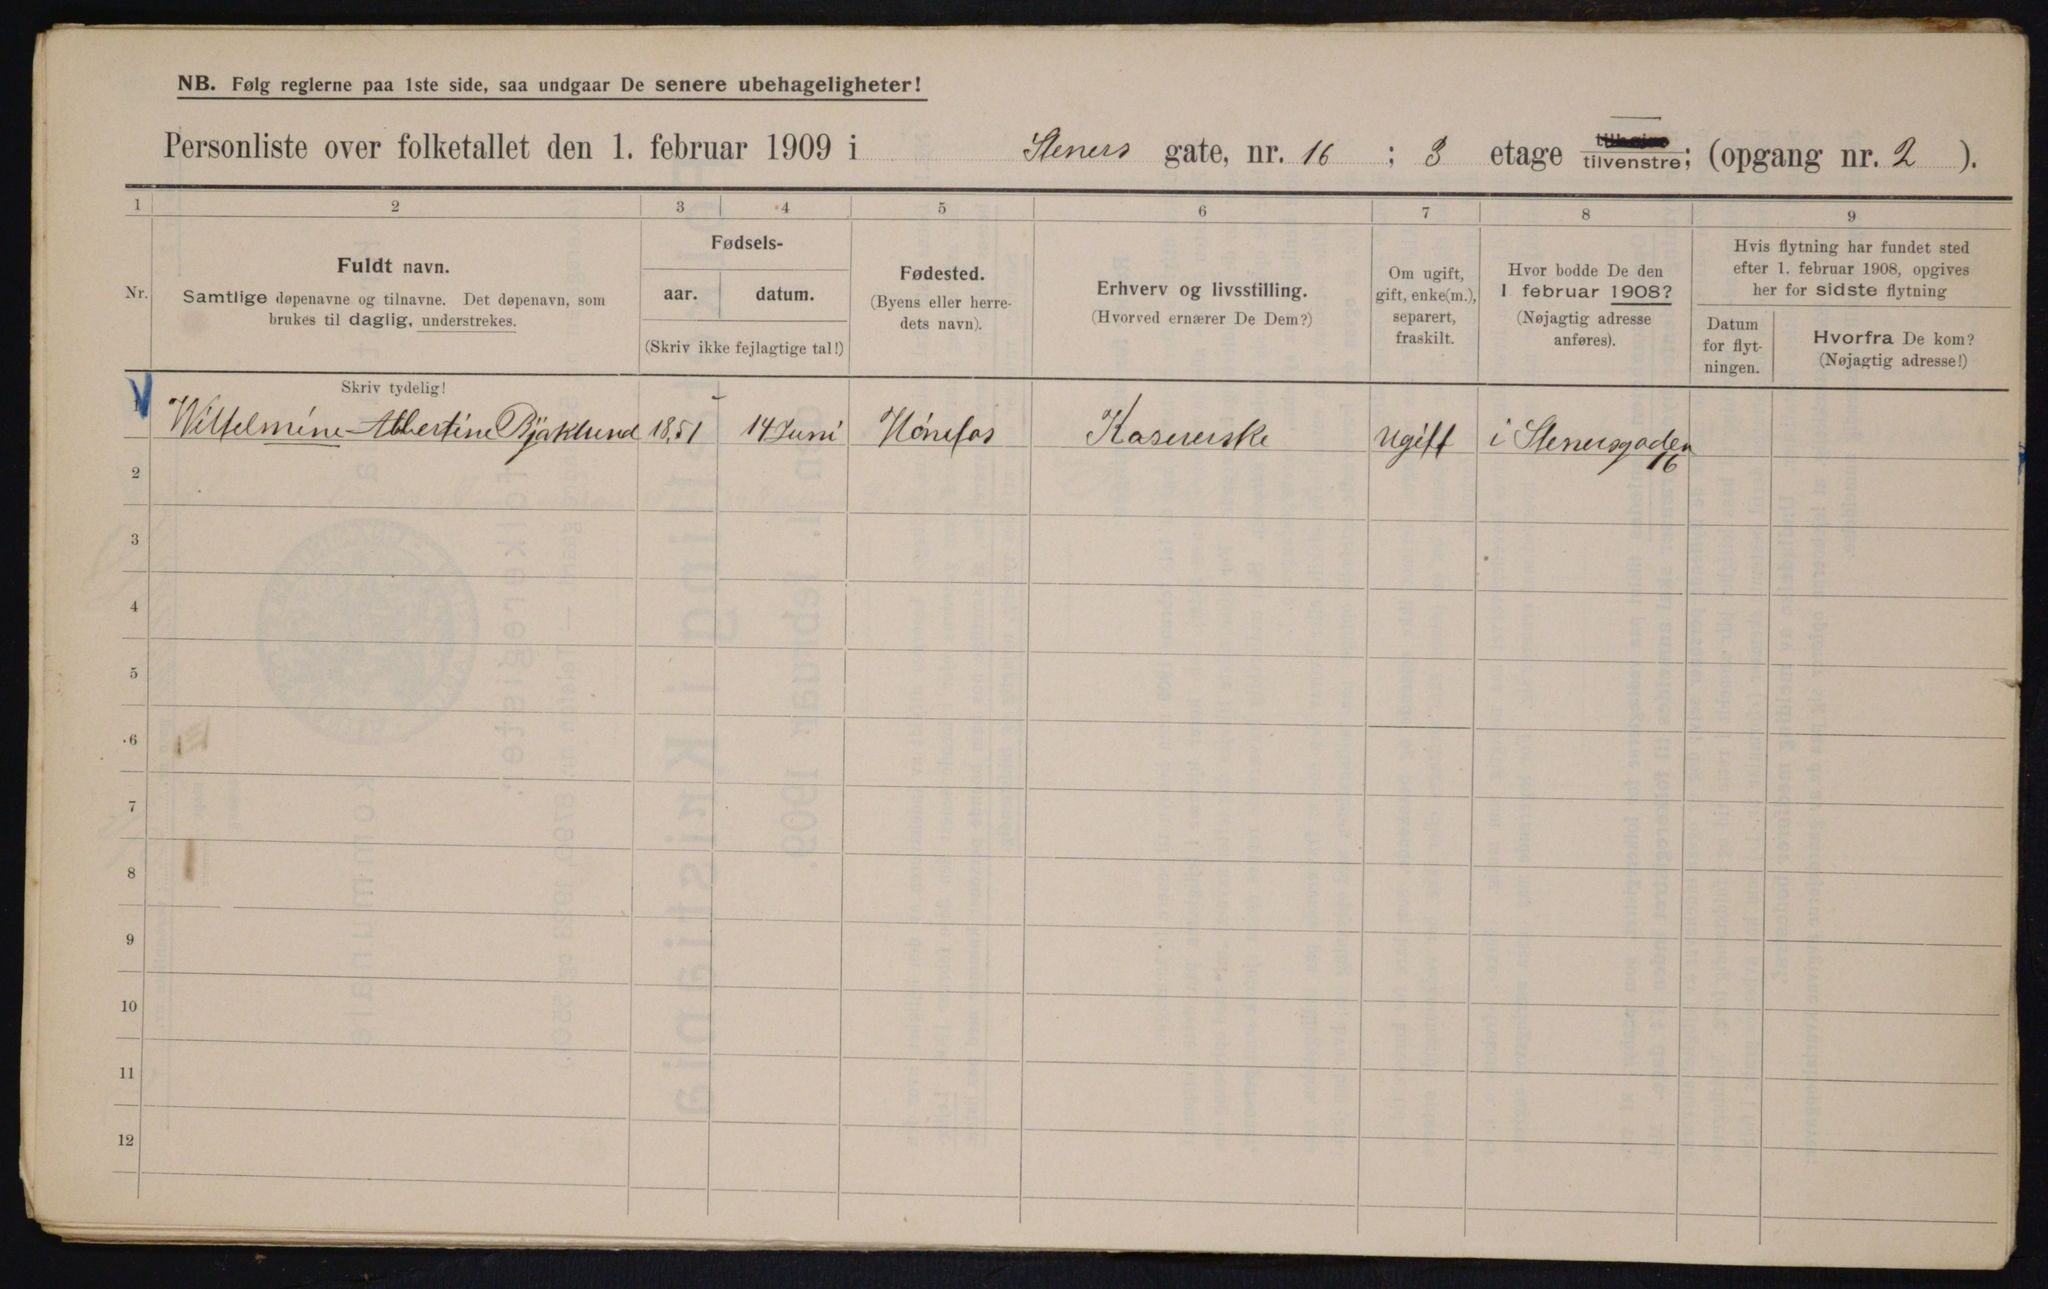 NB. Følg reglerne paa 1ste side, saa undgaar De senere ubehageligheter!
Personliste over folketallet den 1. februar 1909 i Steners gate, nr. 16 ; 3 etage tilvenstre; (opgang nr. 2 ).
1 2 3 4 5 6 7 8 9
Nr.
Fuldt navn.
Samtlige døpenavne og tilnavne. Det døpenavn, som
brukes til daglig, understrekes.
Skriv tydelig!
Fødsels-
aar. datum.
(Skriv ikke fejlagtige tal!)
Fødested.
(Byens eller herre-
dets navn).
Erhverv og livsstilling.
(Hvorved ernærer De Dem?)
Om ugift,
gift, enke(m.),
separert,
fraskilt.
Hvor bodde De den
1 februar 1908?
(Nøjagtig adresse
anføres).
Hvis flytning har fundet sted
efter 1. februar 1908, opgives
her for sidste flytning
Datum
for flyt-
ningen.
Hvorfra De kom?
(Nøjagtig adresse!)
1 Wilhelmine Albertine Bjøklund 18,51 14 Juni Hønefos ugift i Stenersgaden
16
2
3
4
5
6
7
8
9
10
11
12